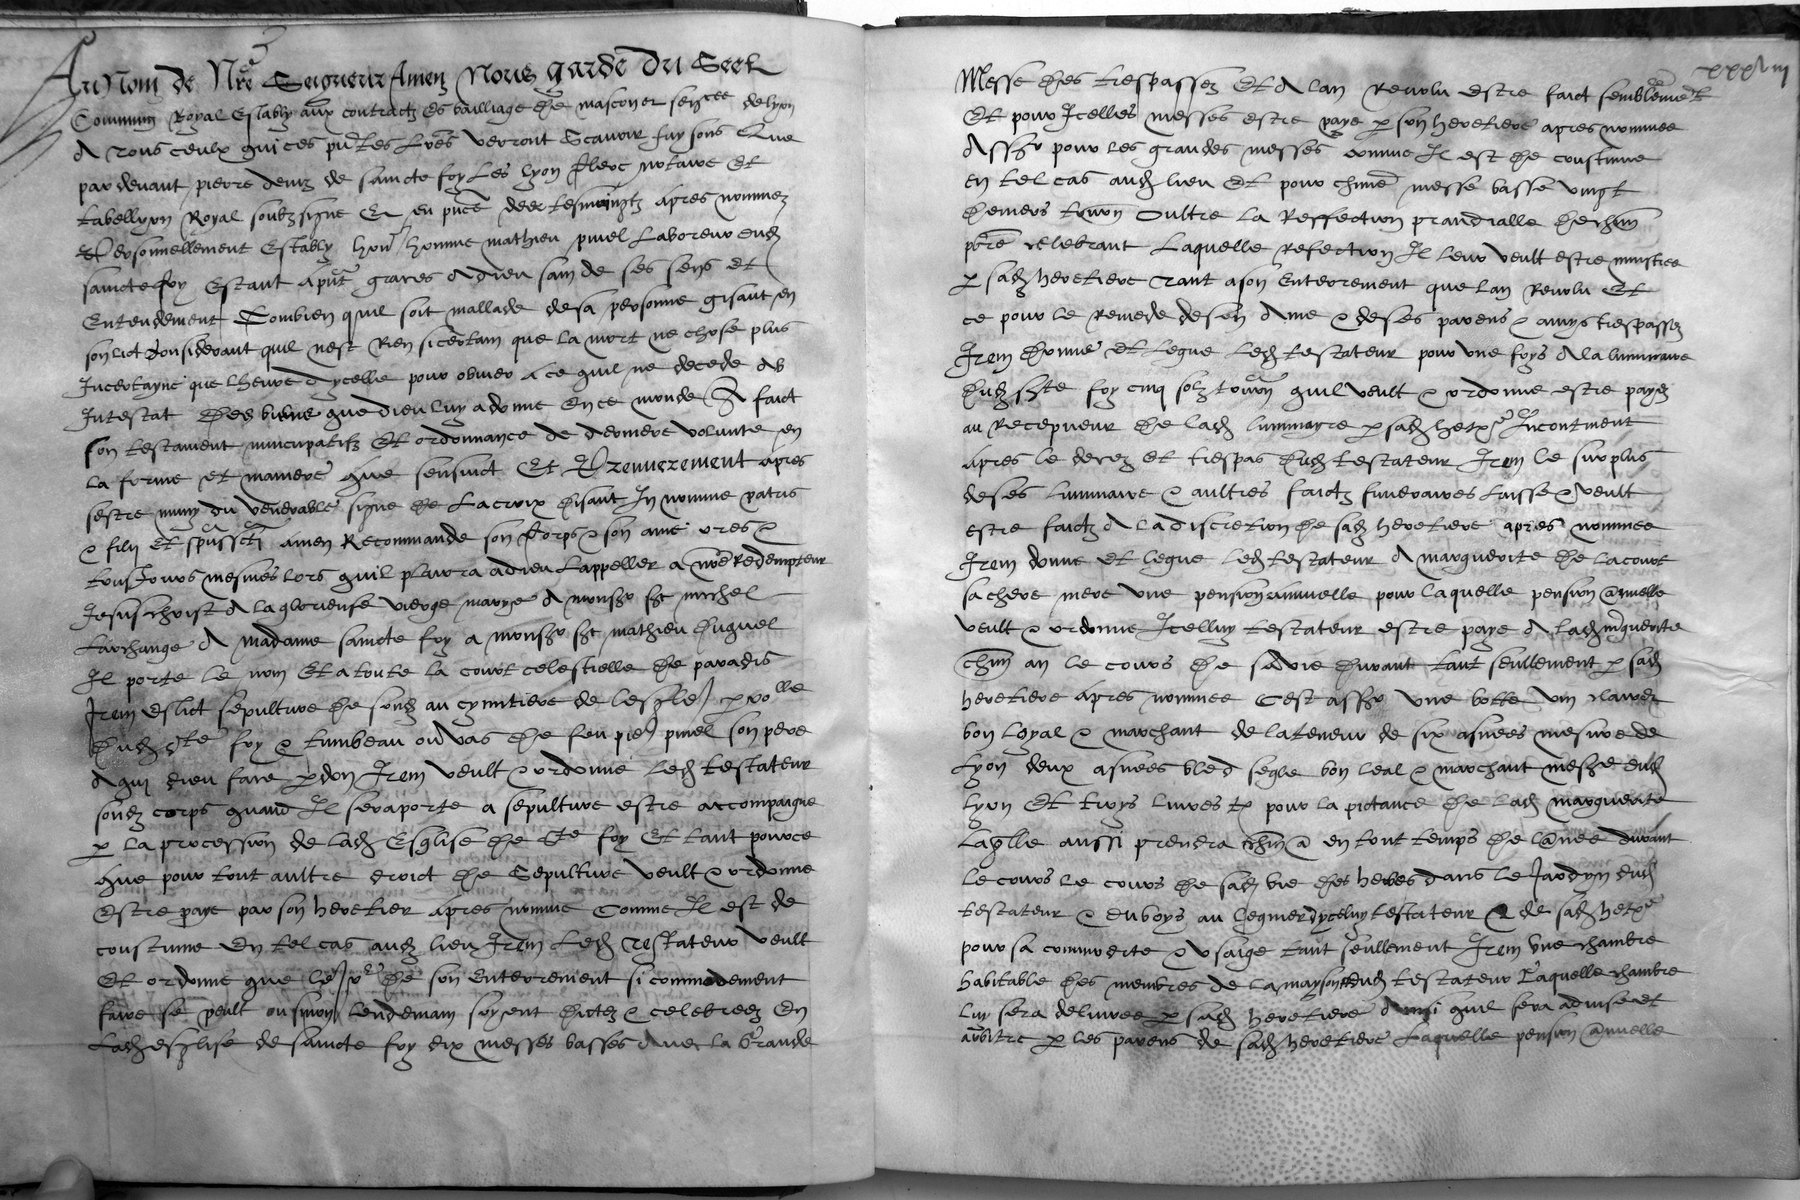 Au Nom de Nre Seigneur Amen Nous garde du Seel
Commun Royal Estably aux contractz es bailliage de masconer senscee de lyon
A tous ceulx qui ces pntes lres verront Scavoir faysons Que
par devant pierre deniz de saincte foy les lyon clerc notaire Et
tabellyon Royal soubzsigne Et en pnce deer tesmoingtz apres nommez
personnellement Estably honn homme mathieu pinel laboreur dud
saincte foy Estant a pnt graces a dieu sain de ses sens Et
Entendement Combien quil soit mallade de sa personne gisant en
son lict Considerant quil nest Rien si certain que la mort ne chose plus
Incertayne que lheure dycelle pour obvier a ce quil ne decede ab
Intestat des biens que dieu luy a donne en ce monde A faict
son testament nuncupatifz Et ordonnance de derniere volunte en
la forme et maniere que sensuict Et Premierement apres
sestre muny du venerable signe de la croix disant In nomine patris
& filii Et spussti amen Recommande son corps & son ame ores &
tousjours mesmes lors quil plaira a dieu lappeller a nre Redempteur
Jesuschrist A la glorieuse vierge marye A monsr st michel
larchange A madame saincte foy a monsr st mathieu duquel
Il porte le nom Et a toute la court celestielle de paradis
Item eslict sepulture de sond au cymitiere de leszle pxolle
dud ste foy & tumbeau ou vas de feu pie pinel son pere
A qui dieu face pdon Item veult & ordonne led testateur
sond corps quand Il sera porte a sepulture estre accompaigne
p la procession de lad Esglise de ste foy Et tant pource
que pour tout aultre droict de Sepulture veult & ordonne
Estre paye par son heretier apres nomme Comme Il est de
coustume En tel cas aud lieu Item led Testateur veult
Et ordonne que le Jor de son Enterrement si commodement
faire se peult ou sinon lendemain soyent dictez & celebreez En
Lad eszlise de saincte foy dix messes basses avec la Grande
xxxviii
Messe des trespassez Et A lan revolu estre faict semblement
Et pour Icelles messes estre paye p son heretiere apres nommee
Assr pour les grandes messes comme Il est de coustume
en tel cas aud lieu Et pour chune messe basse vingt
deniers tournoys Oultre la Reffection prandialle de chun
pbre celebrant Laquelle refection Il leur veult estre ministree
p sad heretiere Tant a son Enterrement que lan Revolu Et
ce pour le remede de son Ame & de ses parens & amys trespassez
Item donne Et legue led testateur pour une foys A la luminaire
dud ste foy cinq solz tourn quil veult & ordonne estre payez
au Recepveur de lad luminayre p sad hetre Incontinent
apres le decez Et trespas dud testateur Item le surplus
de ses luminaire & aultres faictz funeraires Laisse & veult
estre faictz A la discretion de sad heretiere apres nommee
Item donne et legue led testateur A marguerite de lacourt
sa chere mere une pension annuelle pour laquelle pension anuelle
veult & ordonne Icelluy testateur estre paye A lad mguerite
chun an le cours de sa vie durant tant seullement p sad
heretiere apres nommee Cest assr une botte vin claret
bon Loyal & marchant de la teneur de six asnees mesure de
Lyon deux asnees bled segle bon leal & marchant mesre dud
Lyon Et troys livres tz pour la pictance de lad marguerite
Laqlle aussi prendra chun a en tout temps de lanee durant
le cours le cours de sad vie des herbes dans le Jardyn dud
testateur & du boys au legnier dyceluy testateur & de sad hetre
pour sa commodite & usaige tant seullement Item Une chambre
habitable des membres de la maison dud testateur Laquelle chambre
luy sera delivree p sad heretiere Ainsi quil sera advise et
arbitre p les parens de sad heretiere Laquelle pension anuelle